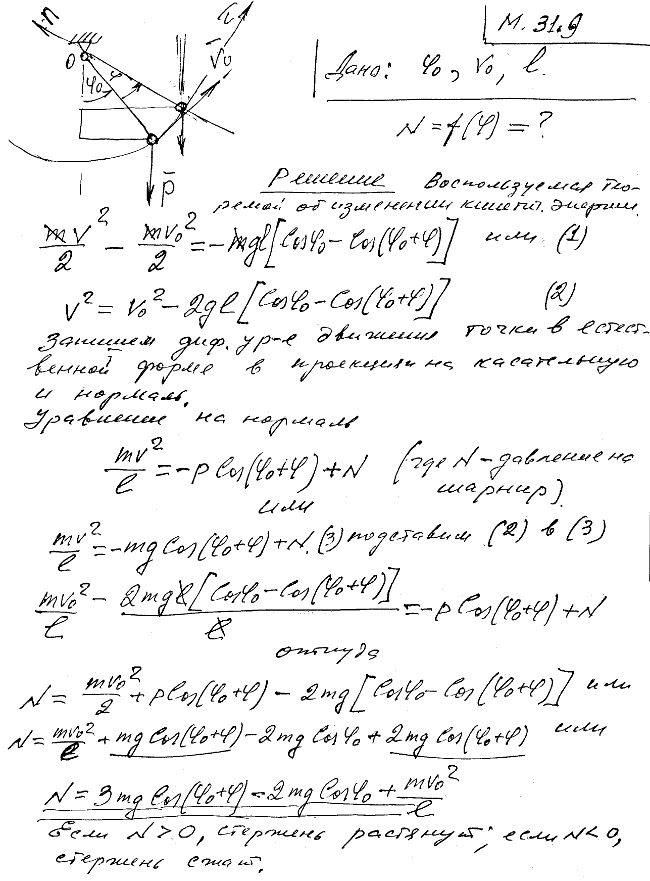 М. 31.9
n
τ
V̄₀
O
φ₀
φ
P̄
Дано: φ₀, v₀, l.
N = f(φ) = ?
Решение Воспользуемся тео-
ремой об изменении кинет. энергии.
mv²/2 − mv₀²/2 = −mgl[Cosφ₀ − Cos(φ₀+φ)] или (1)
v² = v₀² − 2gl[Cosφ₀ − Cos(φ₀+φ)] (2)
Запишем диф. ур-е движения точки в естест-
венной форме в проекции на касательную
и нормаль.
Уравнение на нормаль
mv²/l = −P Cos(φ₀+φ) + N (где N – давление на
шарнир).
или
mv²/l = −mg Cos(φ₀+φ) + N. (3) подставим (2) в (3)
mv₀²/l − 2mgl[Cosφ₀ − Cos(φ₀+φ)]/l = −P Cos(φ₀+φ) + N
откуда
N = mv₀²/2 + P Cos(φ₀+φ) − 2mg[Cosφ₀ − Cos(φ₀+φ)] или
N = mv₀²/l + mg Cos(φ₀+φ) − 2mg Cosφ₀ + 2mg Cos(φ₀+φ) или
N = 3mg Cos(φ₀+φ) − 2mg Cosφ₀ + mv₀²/l
Если N > 0, стержень растянут; если N < 0,
стержень сжат.